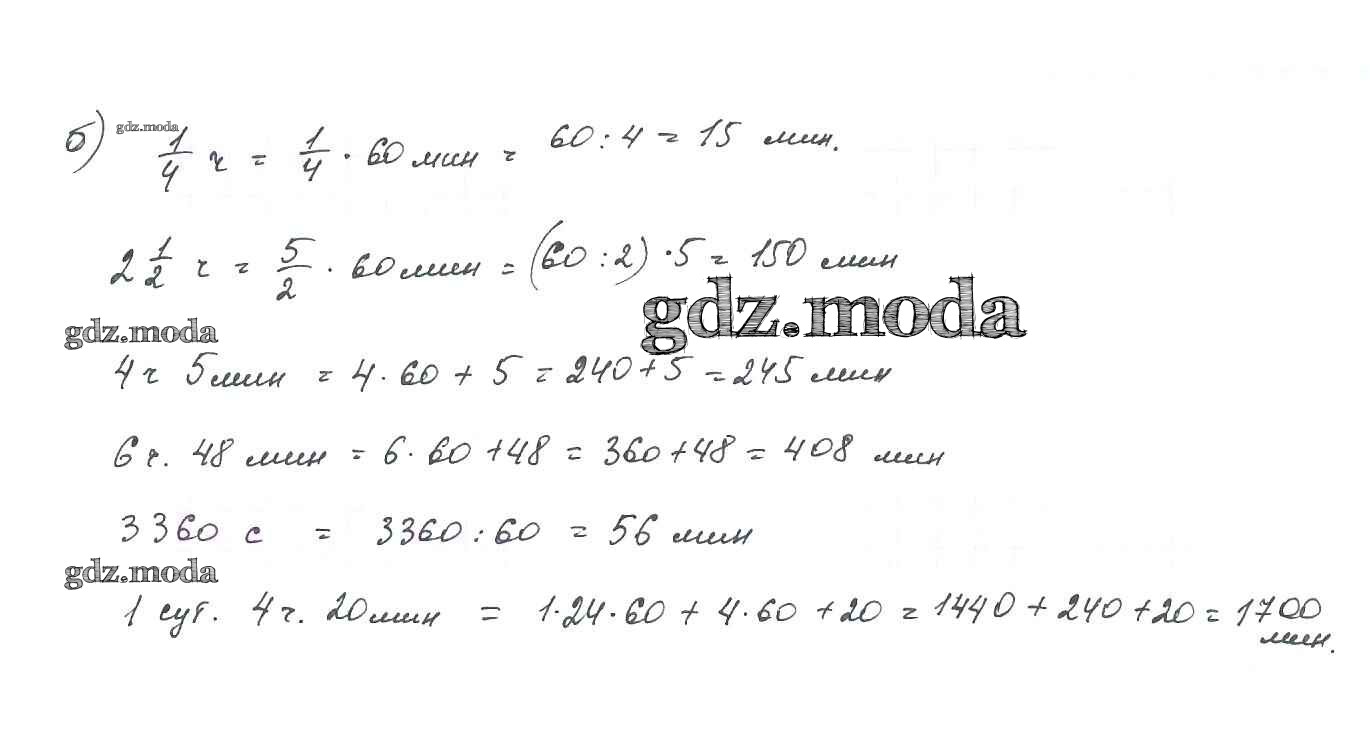 б) gdz.moda 1/4 ч = 1/4 · 60 мин = 60 : 4 = 15 мин.
2 1/2 ч = 5/2 · 60 мин = (60 : 2) · 5 = 150 мин
gdz.moda
gdz.moda
4ч 5 мин = 4 · 60 + 5 = 240 + 5 = 245 мин
6 ч. 48 мин = 6 · 60 + 48 = 360 + 48 = 408 мин
3360 с = 3360 : 60 = 56 мин
gdz.moda
1 сут. 4 ч. 20 мин = 1·24·60 + 4·60 + 20 = 1440 + 240 + 20 = 1700
мин.